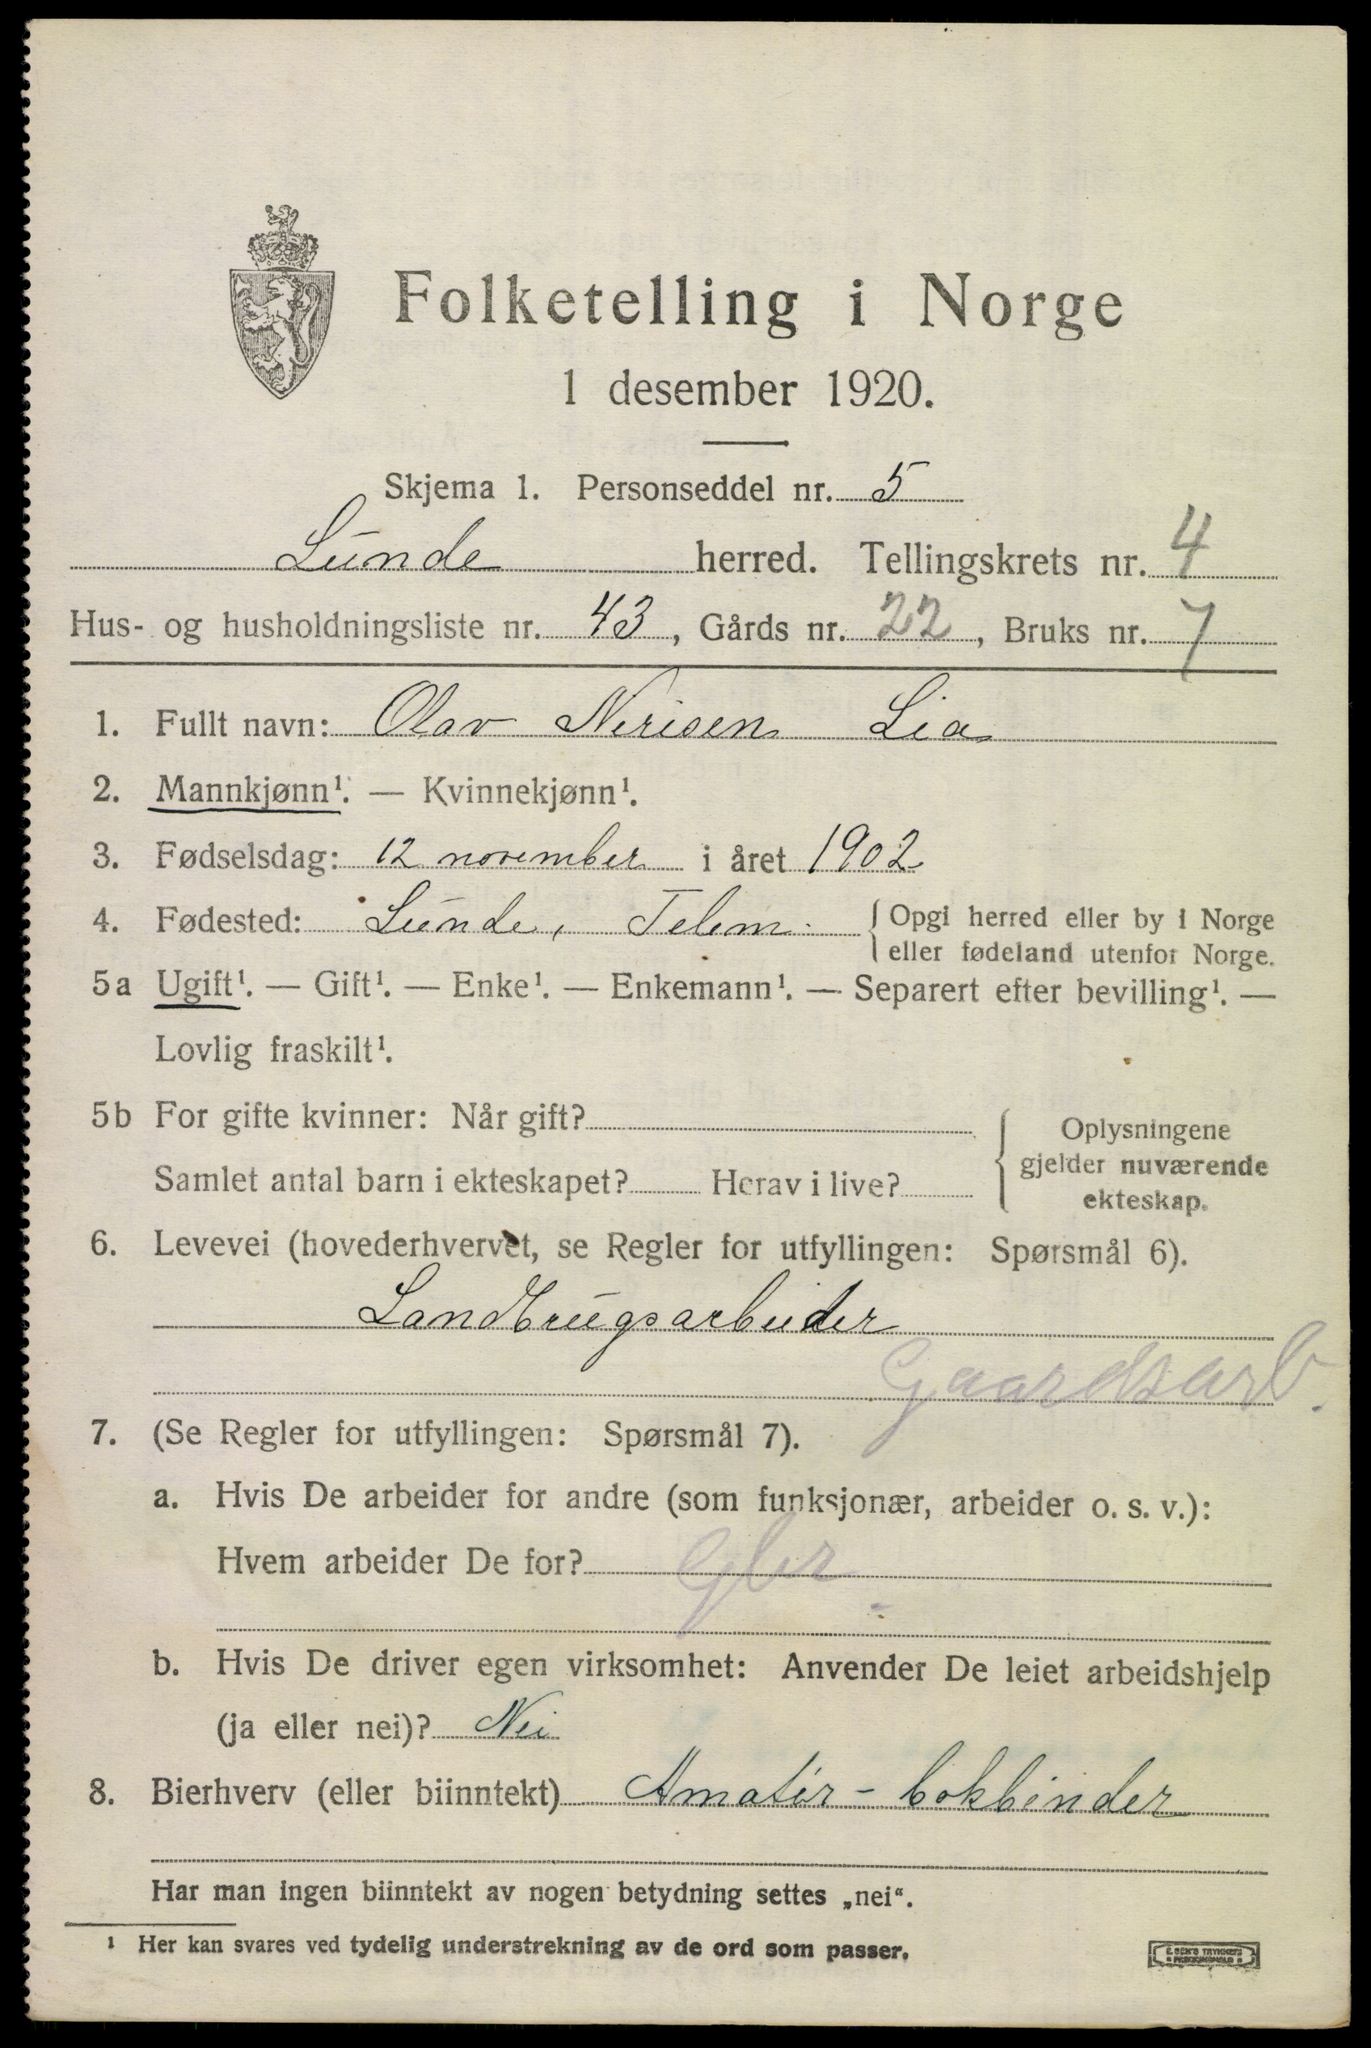 Folketelling i Norge
1 desember 1920.
Skjema 1. Personseddel nr. 5
Lunde herred. Tellingskrets nr. 4
Hus- og husholdningsliste nr. 43, Gårds nr. 22, Bruks nr. 7
1. Fullt navn: Olav Nerisen Lia
2. Mannkjønn¹. — Kvinnekjønn¹.
3. Fødselsdag: 12 november i året 1902
4. Fødested: Lunde, Telem. {Opgi herred eller by i Norge
eller fødeland utenfor Norge.
5a Ugift¹. — Gift¹. — Enke¹. — Enkemann¹. — Separert efter bevilling¹. —
Lovlig fraskilt¹.
5b For gifte kvinner: Når gift?
Samlet antal barn i ekteskapet? Herav i live?
{Oplysningene
gjelder nuværende
ekteskap.
6. Levevei (hovederhvervet, se Regler for utfyllingen: Spørsmål 6).
Landbrugsarbeider
Gaardsarb.
7. (Se Regler for utfyllingen: Spørsmål 7).
a. Hvis De arbeider for andre (som funksjonær, arbeider o. s. v.):
Hvem arbeider De for?
b. Hvis De driver egen virksomhet: Anvender De leiet arbeidshjelp
(ja eller nei)? Nei
8. Bierhverv (eller biinntekt) Amatør-bokbinder
Har man ingen biinntekt av nogen betydning settes „nei“.
¹ Her kan svares ved tydelig understrekning av de ord som passer.